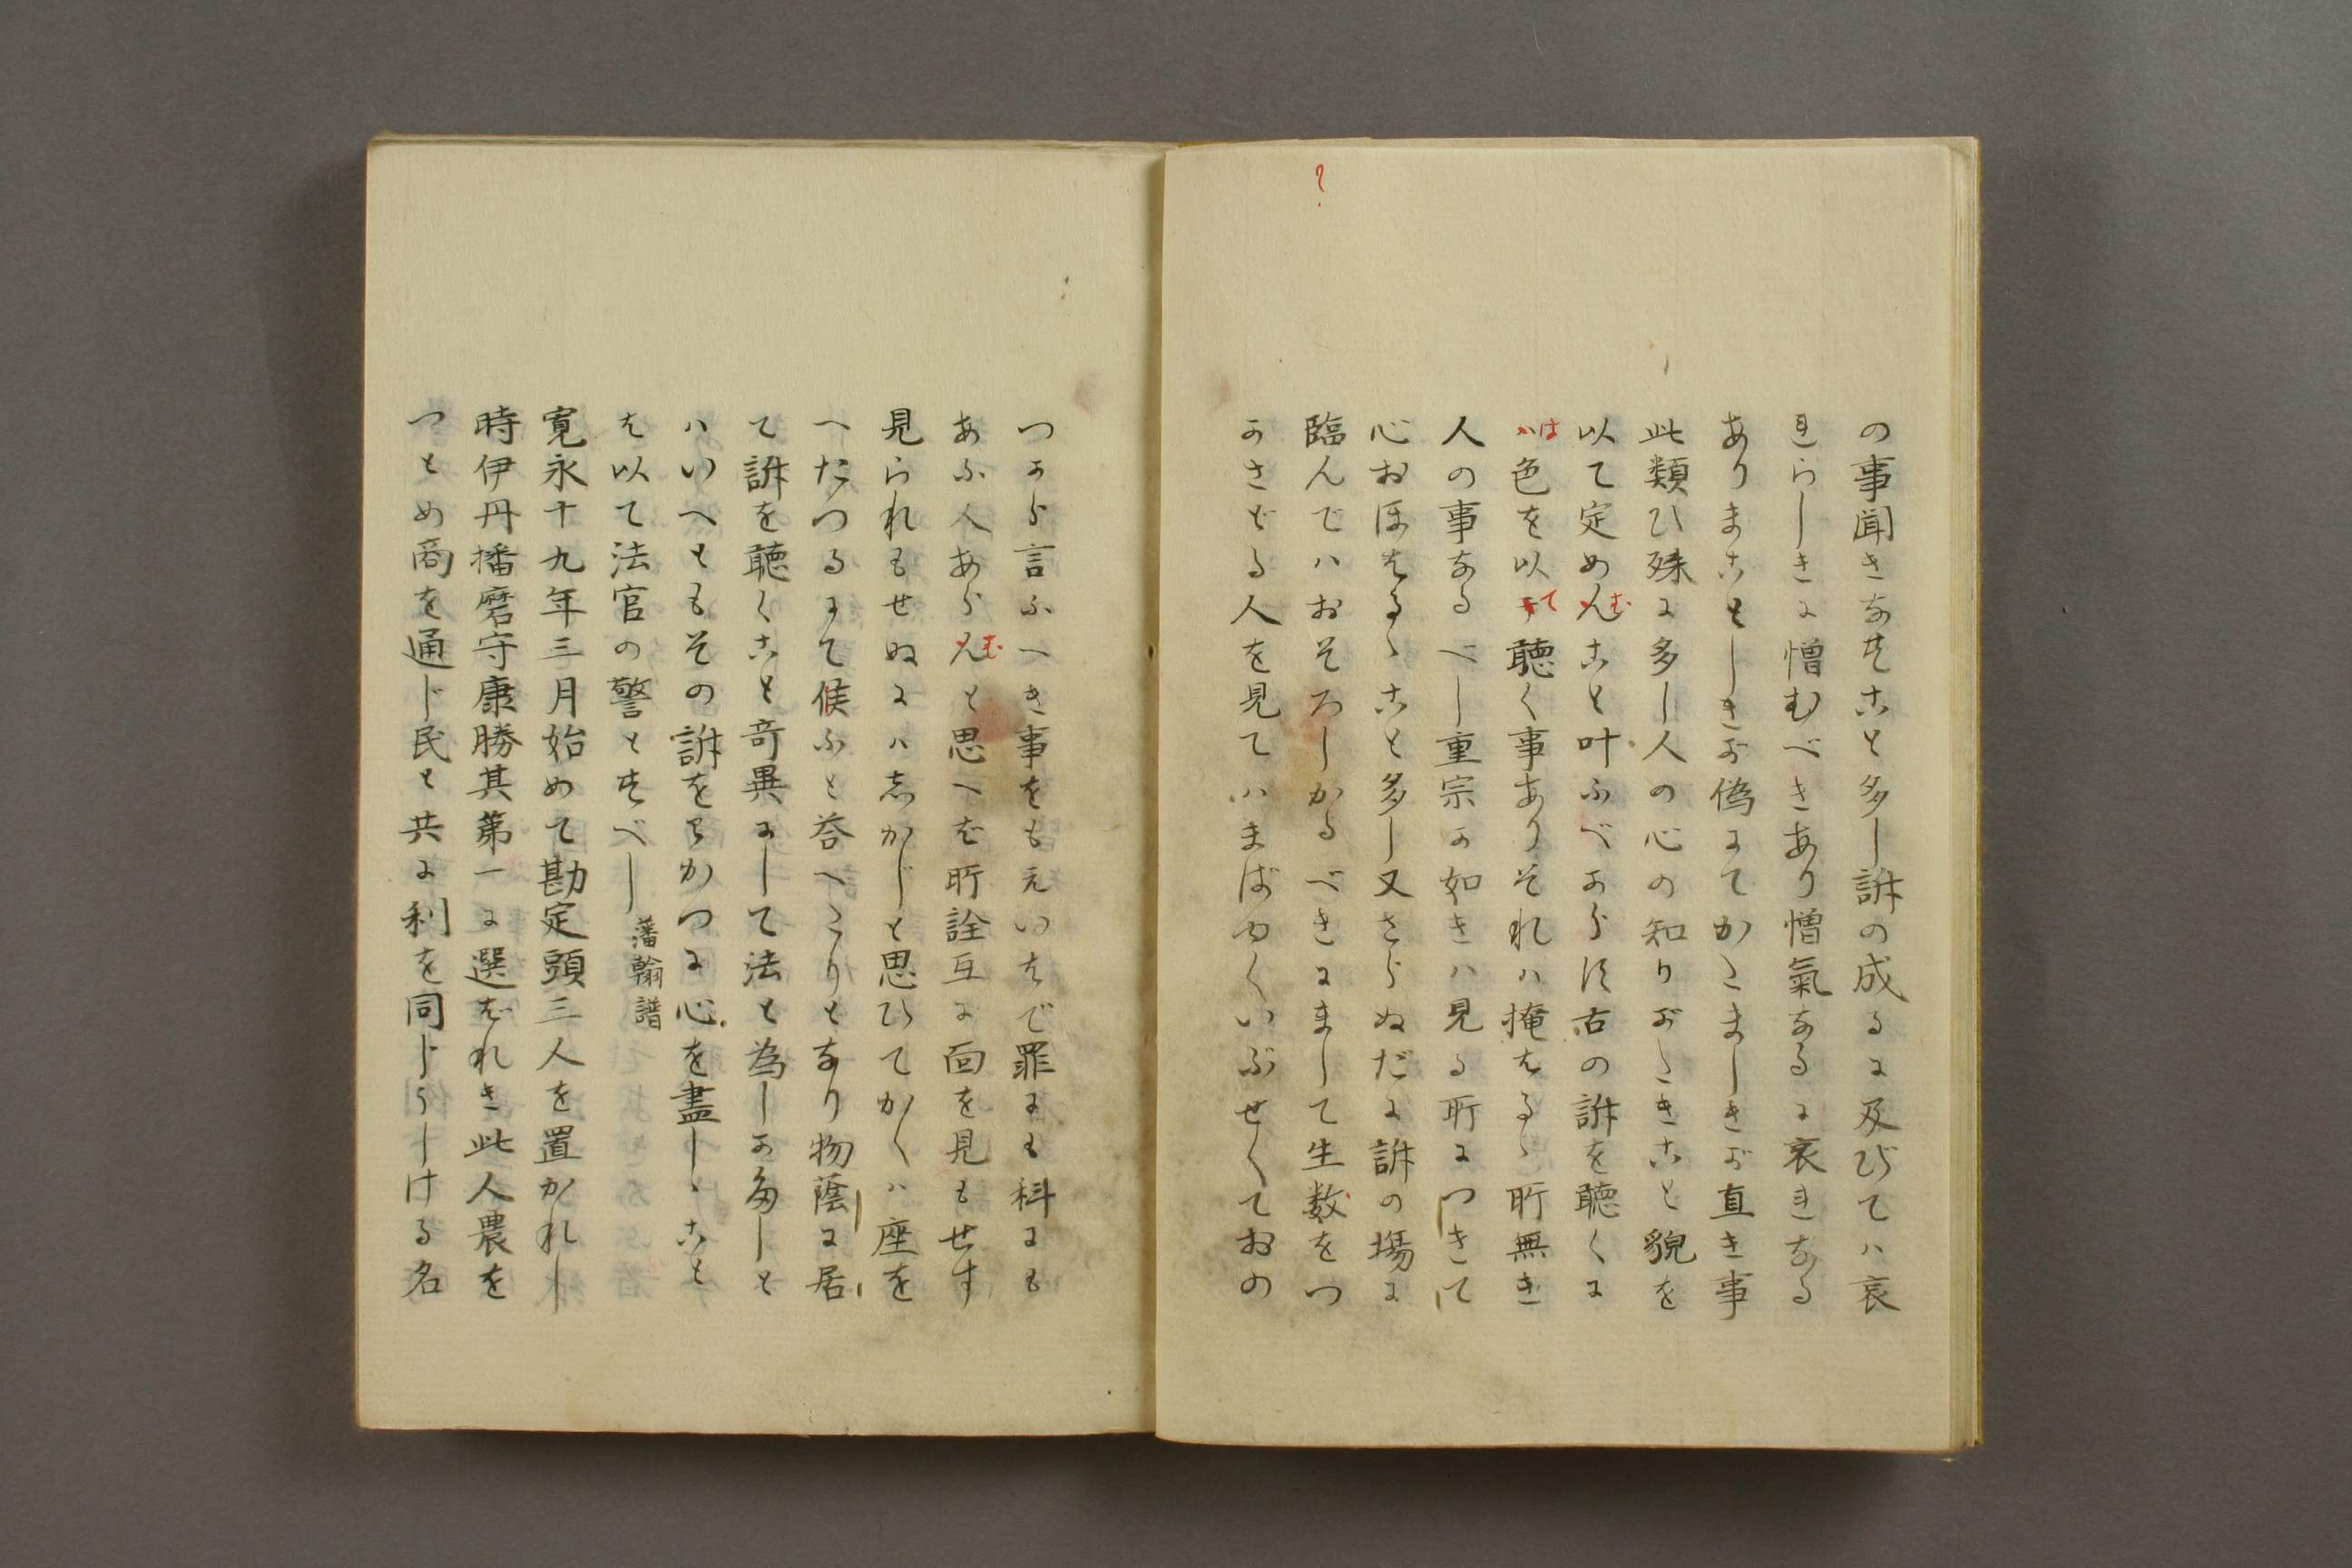 の事聞きなすこと多し訴の成るに及びてハ哀
れらしきに憎むべきあり憎氣あるに哀れなる
ありまことしきが偽にてかたましきが直き事
此類ひ殊に多し人の心の知りがたきこと貌を
以て定めんむこと叶ふべからす古の訴を聴くに
ハは色を以テて聴く事ありそれハ掩はるゝ所無き
人の事なるべし重宗の如きハ見る所につきて
心おほはるゝこと多し又さらぬだに訴の場に
臨んでハおそろしかるべきにまして生数をつ
かさどる人を見てハまばゆくいぶせくておの
?
つから言ふへき事をもえいはで罪にも科にも
あふ人あらんむと思へば所詮互に面を見もせす
見られもせぬにハ志かじと思ひてかくハ座を
へだつるにて候ふと答へたりとなり物蔭に居
て訴を聴くこと奇異にして法と為しがたしと
ハいへともその訴をわかつに心を盡しゝこと
を以て法官の警とすべし 藩翰譜
寛永十九年三月始めて勘定頭三人を置かれし
時伊丹播磨守康勝其第一に選ばれき此人農を
つとめ商を通じ民と共に利を同じうしける名